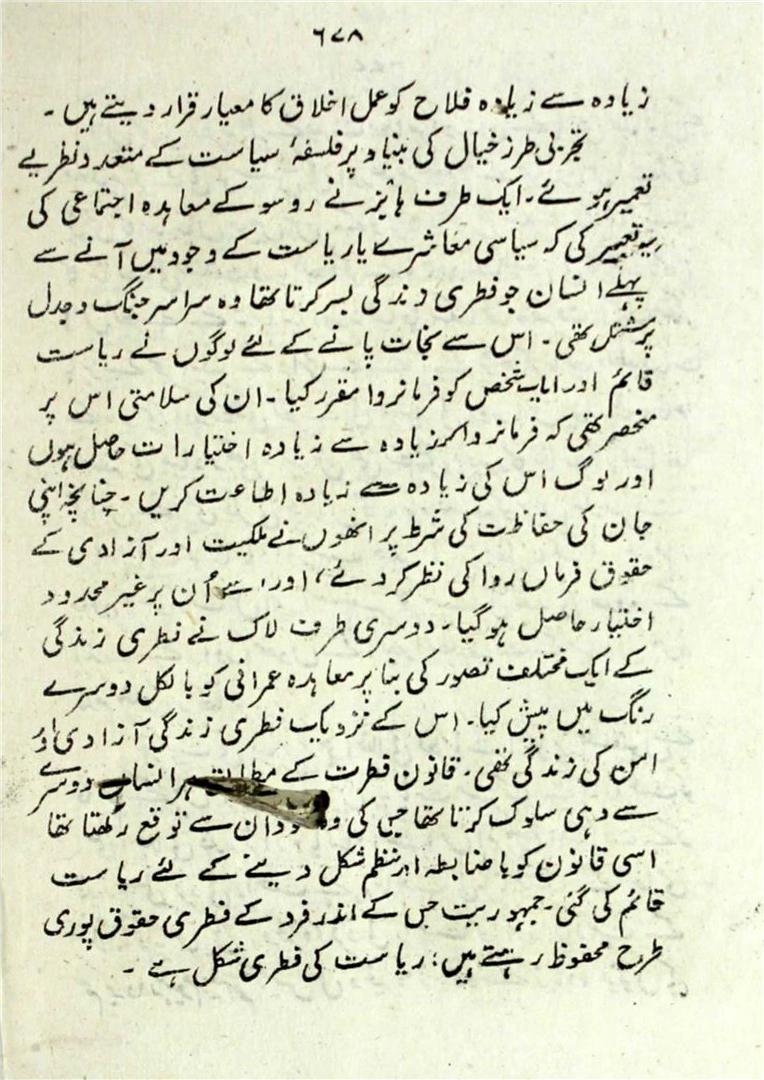 ٦٤٨
زیادہ سے زیادہ فلاح کو عمل اخلاق کا معیار قرار دیتے ہیں۔
تجربی طرز خیال کی بنیاد پر فلسفۂ سیاست کے متعدد نظریے
تعمیر ہوئے۔ ایک طرف ہابز نے روسو کے معاہدہ اجتماعی کی
یہ تعبیر کی کہ سیاسی معاشرے یا ریاست کے وجود میں آنے سے
پہلے انسان جو فطری زندگی بسر کرتا تھا وہ سراسر جنگ و جدل
پر مشتمل تھی۔ اس سے نجات پانے کے لئے لوگوں نے ریاست
قائم اور ایک شخص کو فرمانروا مقرر کیا۔ ان کی سلامتی اس پر
منحصر تھی کہ فرمانروا کو زیادہ سے زیادہ اختیارات حاصل ہوں
اور لوگ اس کی زیادہ سے زیادہ اطاعت کریں۔ چنانچہ اپنی
جان کی حفاظت کی شرط پر انھوں نے ملکیت اور آزادی کے
حقوق فرماں روا کی نظر کر دئے، اور اسے اُن پر غیر محدود
اختیار حاصل ہو گیا۔ دوسری طرف لاک نے فطری زندگی
کے ایک مختلف تصور کی بنا پر معاہدہ عمرانی کو بالکل دوسرے
رنگ میں پیش کیا۔ اس کے نزدیک فطری زندگی آزادی اور
امن کی زندگی تھی۔ قانون فطرت کے مطابق ہر انسان دوسرے
سے وہی سلوک کرتا تھا جس کی وہ خود ان سے توقع رکھتا تھا
اسی قانون کو باضابطہ اور منظم شکل دینے کے لئے ریاست
قائم کی گئی۔ جمہوریت جس کے اندر فرد کے فطری حقوق پوری
طرح محفوظ رہتے ہیں: ریاست کی فطری شکل ہے۔